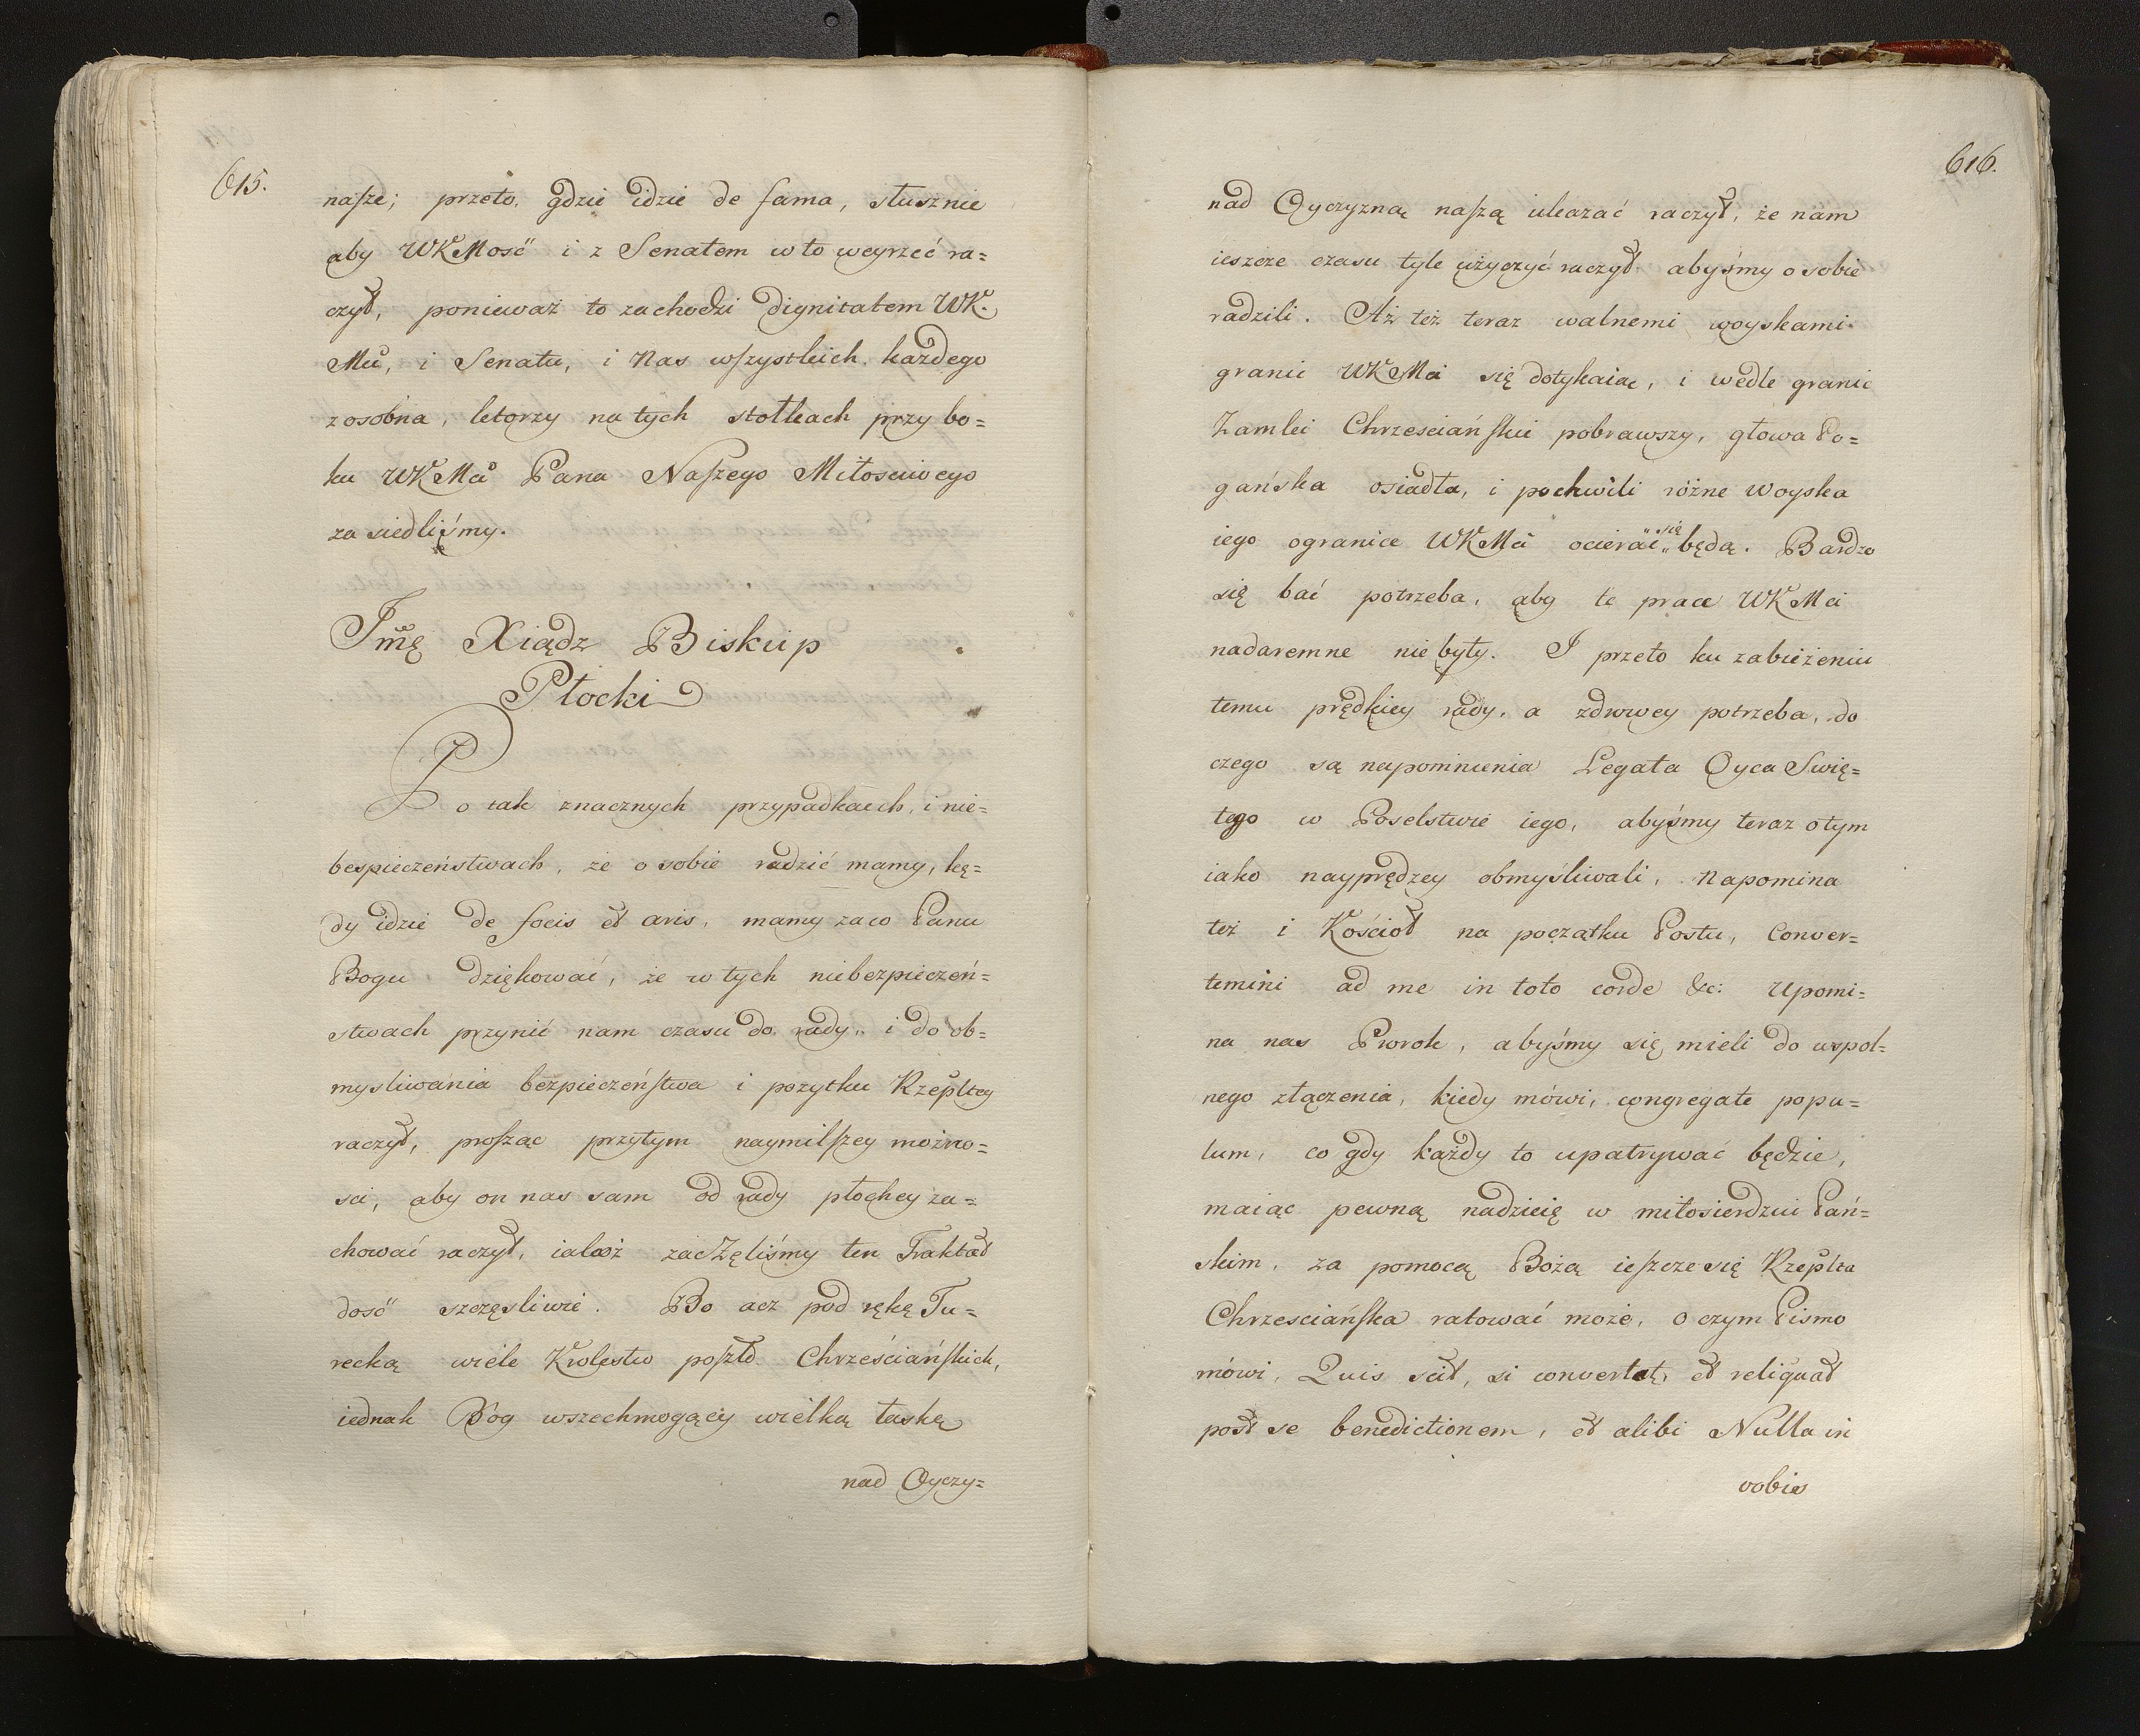 615.
nasze; przeto, gdzie idzie de fama, słusznie
aby WKMość i z Senatem w to weyrzeć ra=
czył, ponieważ to zachodzi dignitatem WK.
Mci, i Senatu, i Nas wszystkich każdego
zosobna, ktorzy na tych stołkach przy bo=
ku WKMci Pana Naszego Miłosciwego
zasiedliśmy.
Jmę Xiądz Biskup
Płocki
Po tak znacznych przypadkach, i nie=
bespieczeństwach, że o sobie radzić mamy, kę=
dy idzie de focis et aris, mamy zaco Panu
Bogu dziękować, że w tych niebezpieczeń=
stwach przynić nam czasu do rady, i do ob=
mysliwania bezpieczeństwa i pozytku Rzepltey
raczył, prosząc przytym naymilszey możno=
sci, aby on nas sam od rady płochey za=
chować raczył, iakoż zaczęliśmy ten Traktat
dosć szczęsliwie. Bo acz pod rękę Tu=
recką wiele Krolestw poszło Chrześciańskich,
iednak Bóg wszechmogący wielką łaskę
nad Oyczy=
616.
nad Oyczyzną naszą ukazać raczył, że nam
ieszcze czasu tyle użyczyć raczył abyśmy o sobie
radzili. Aż też teraz walnemi woyskami
granic WKMci się dotykaiąc, i wedle granic
Zamki Chrzesciańskie pobrawszy, głowa Po=
gańska osiadła, i pochwili różne Woyska
iego ogranice WKMci ocierać się będą. Bardzo
się bać potrzeba, aby te prace WKMci
nadaremne nie były. I przeto ku zabieżeniu
temu prędkiey rady, a zdrowey potrzeba, do
czego są napomnienia Legata Oyca Swię=
tego w Poselstwie iego, abyśmy teraz o tym
iako nayprędzey obmyśliwali, Napomina
też i Kościoł na początku Postu, Conver=
temini ad me in toto corde &c: Upomi=
na nas Prorok, abyśmy się mieli do wspol=
nego złączenia, kiedy mówi, congregate popu=
lum, co gdy każdy to upatrywać będzie,
maiąc pewną nadzieię w miłosierdziu Pań=
skim, za pomocą Bożą ieszcze się Rzeplta
Chrzesciańska ratować może, o czym Pismo
mówi, Quis scit, si convertat, et reliquat
post se benedictionem, et alibi Nulla in
vobis